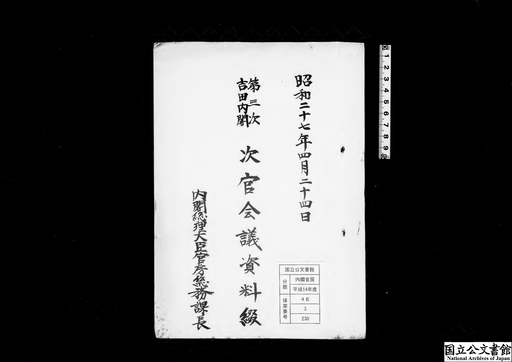 昭和二十七年四月二十四日
第三次
吉田内閣
次官会議資料綴
内閣総理大臣官房総務課長
国立公文書館
分類
内閣官房
平成14年度
排架番号
4E
3
230
1 2 3 4 5 6 7 8 9
国立公文書館
National Archives of Japan